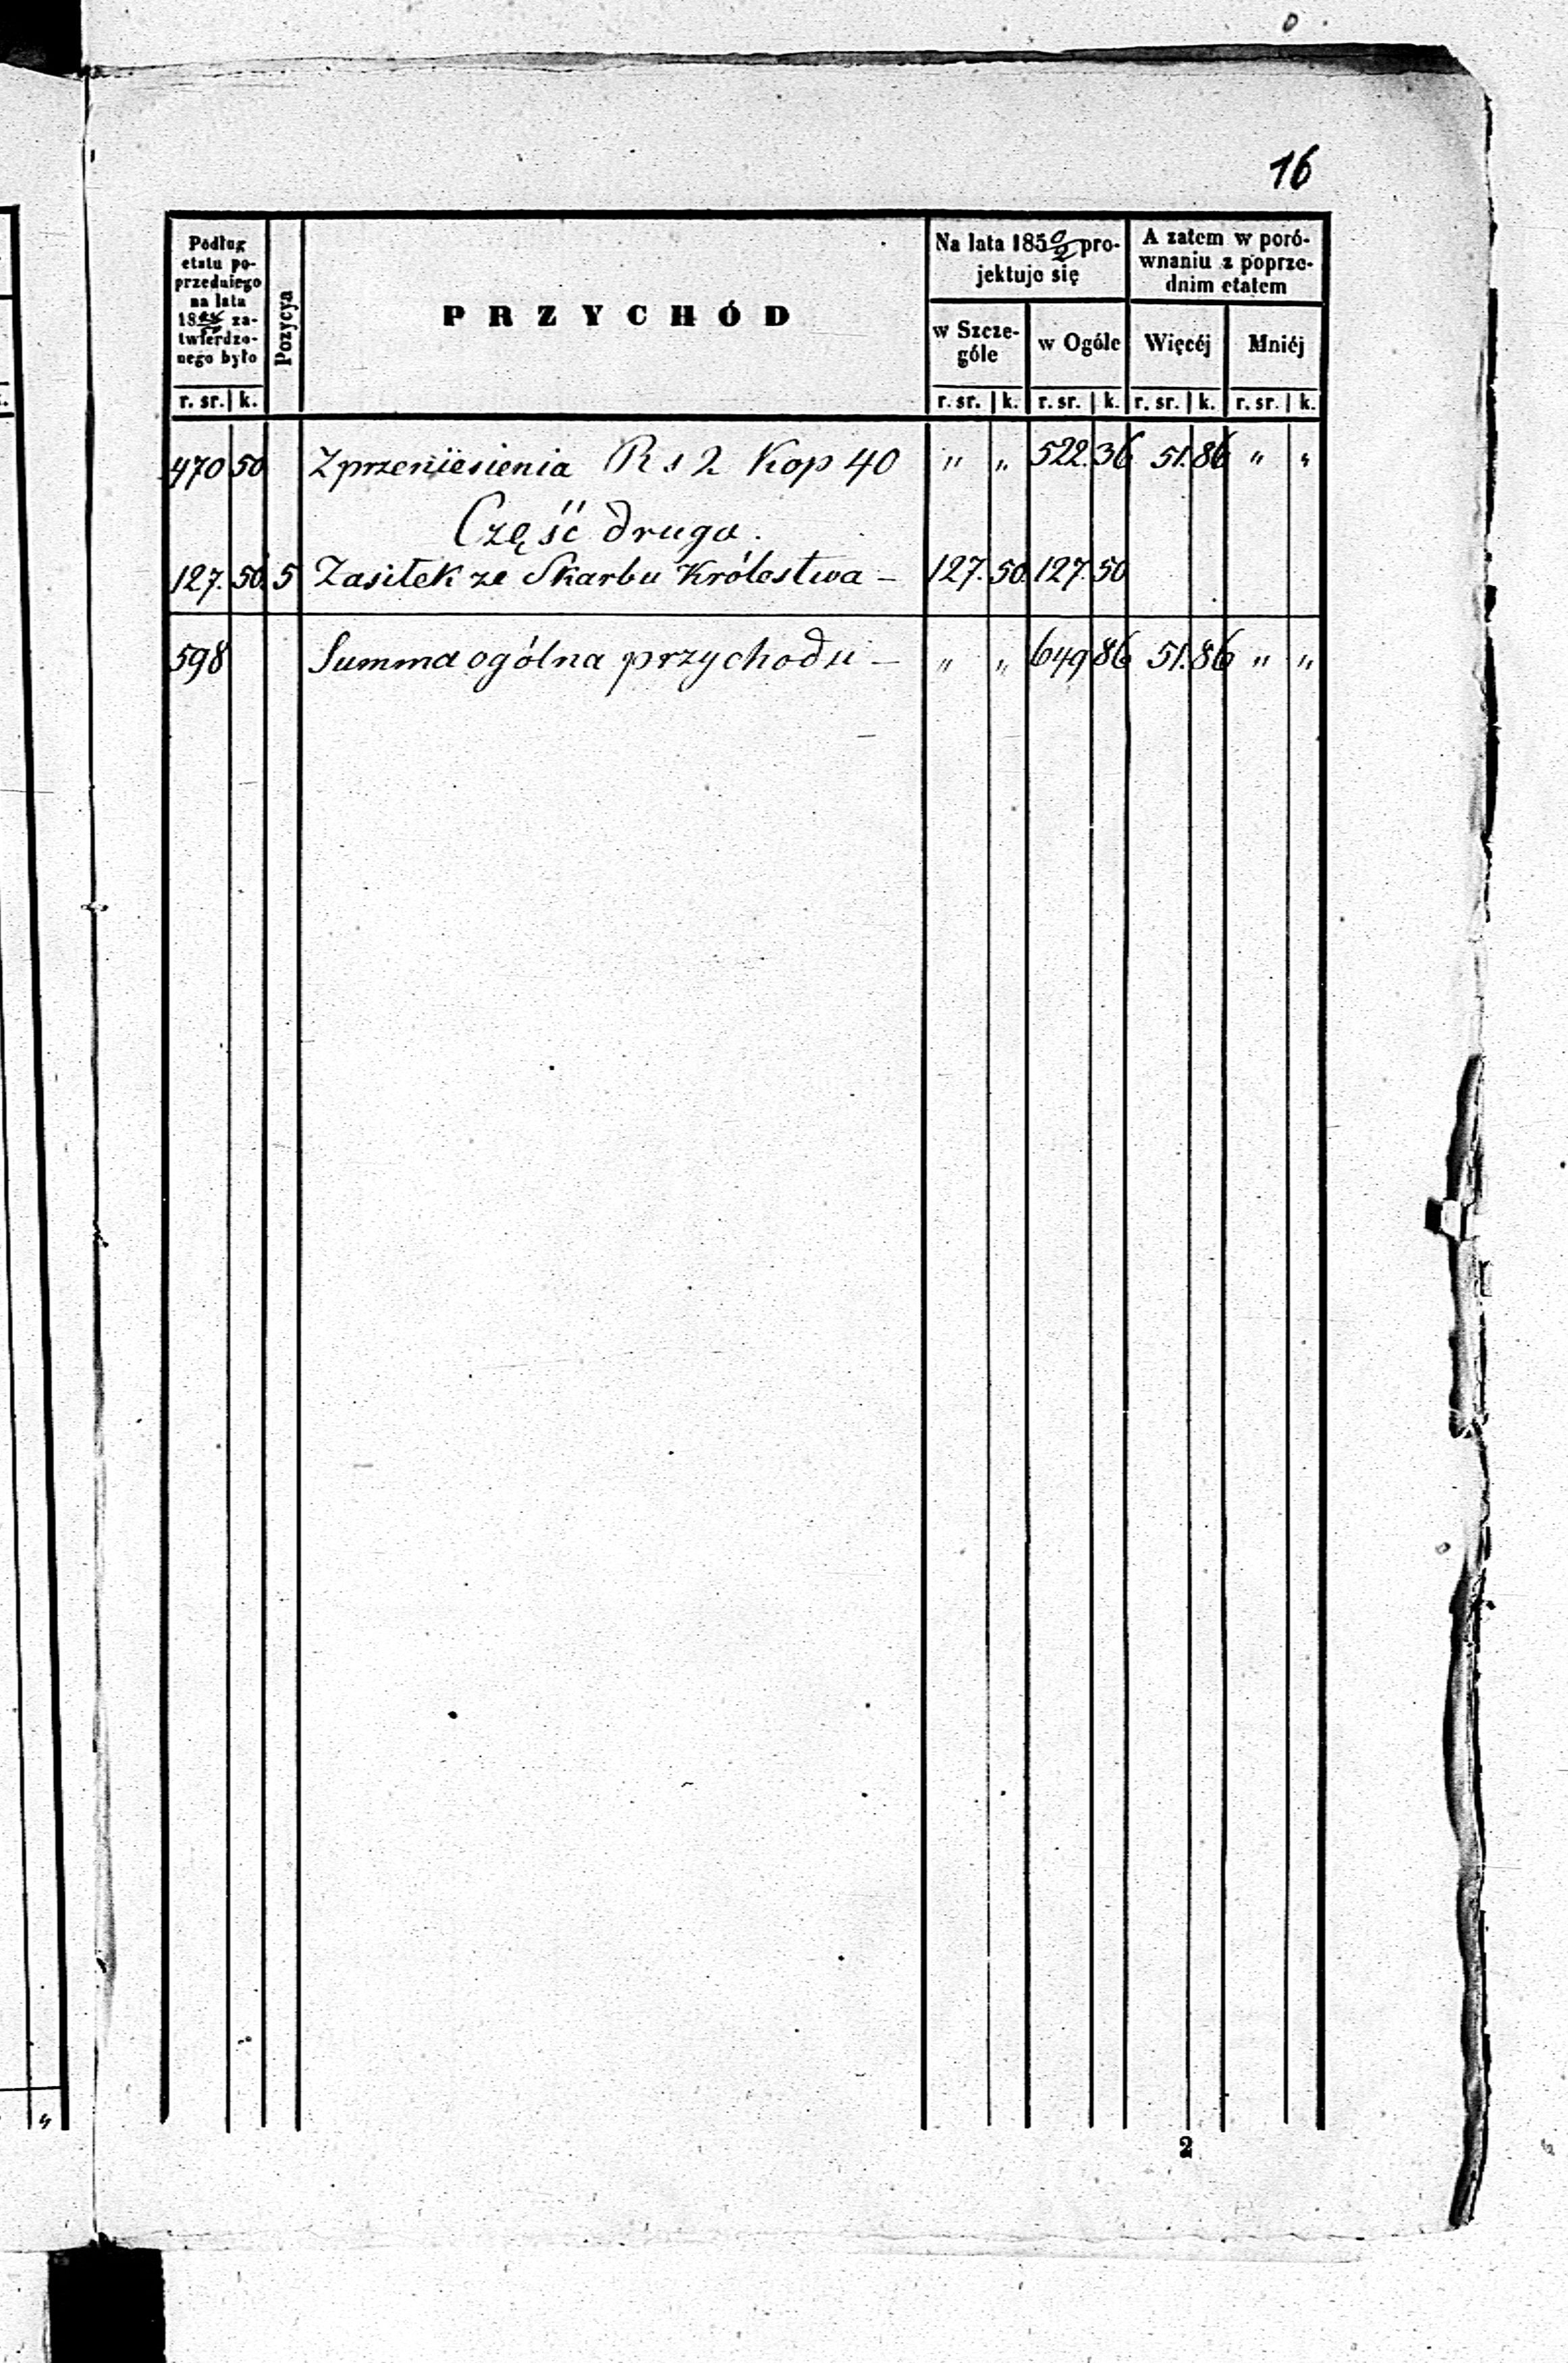 16
Podług
etatu po-
przedniego
na lata
18 za-
twierdzo-
nego było
Pozycya
PRZYCHÓD
Na lata 185 0/2 pro-
jektuje się
A zatem w poró-
wnaniu z poprze-
dnim etatem
w Szcze-
góle
w Ogóle
Więcéj
Mniéj
r. sr. k. r. sr. k. r. sr. k. r. sr. k. r. sr. k.
470 50 Z przeniesienia R s 2 Kop 40 " " 522. 36 51. 86 " "
Część druga.
127. 50. 5 Zasiłek ze Skarbu Królestwa – 127. 50. 127. 50
598 Summa ogólna przychodu – " " 649 86 51. 86 " "
2